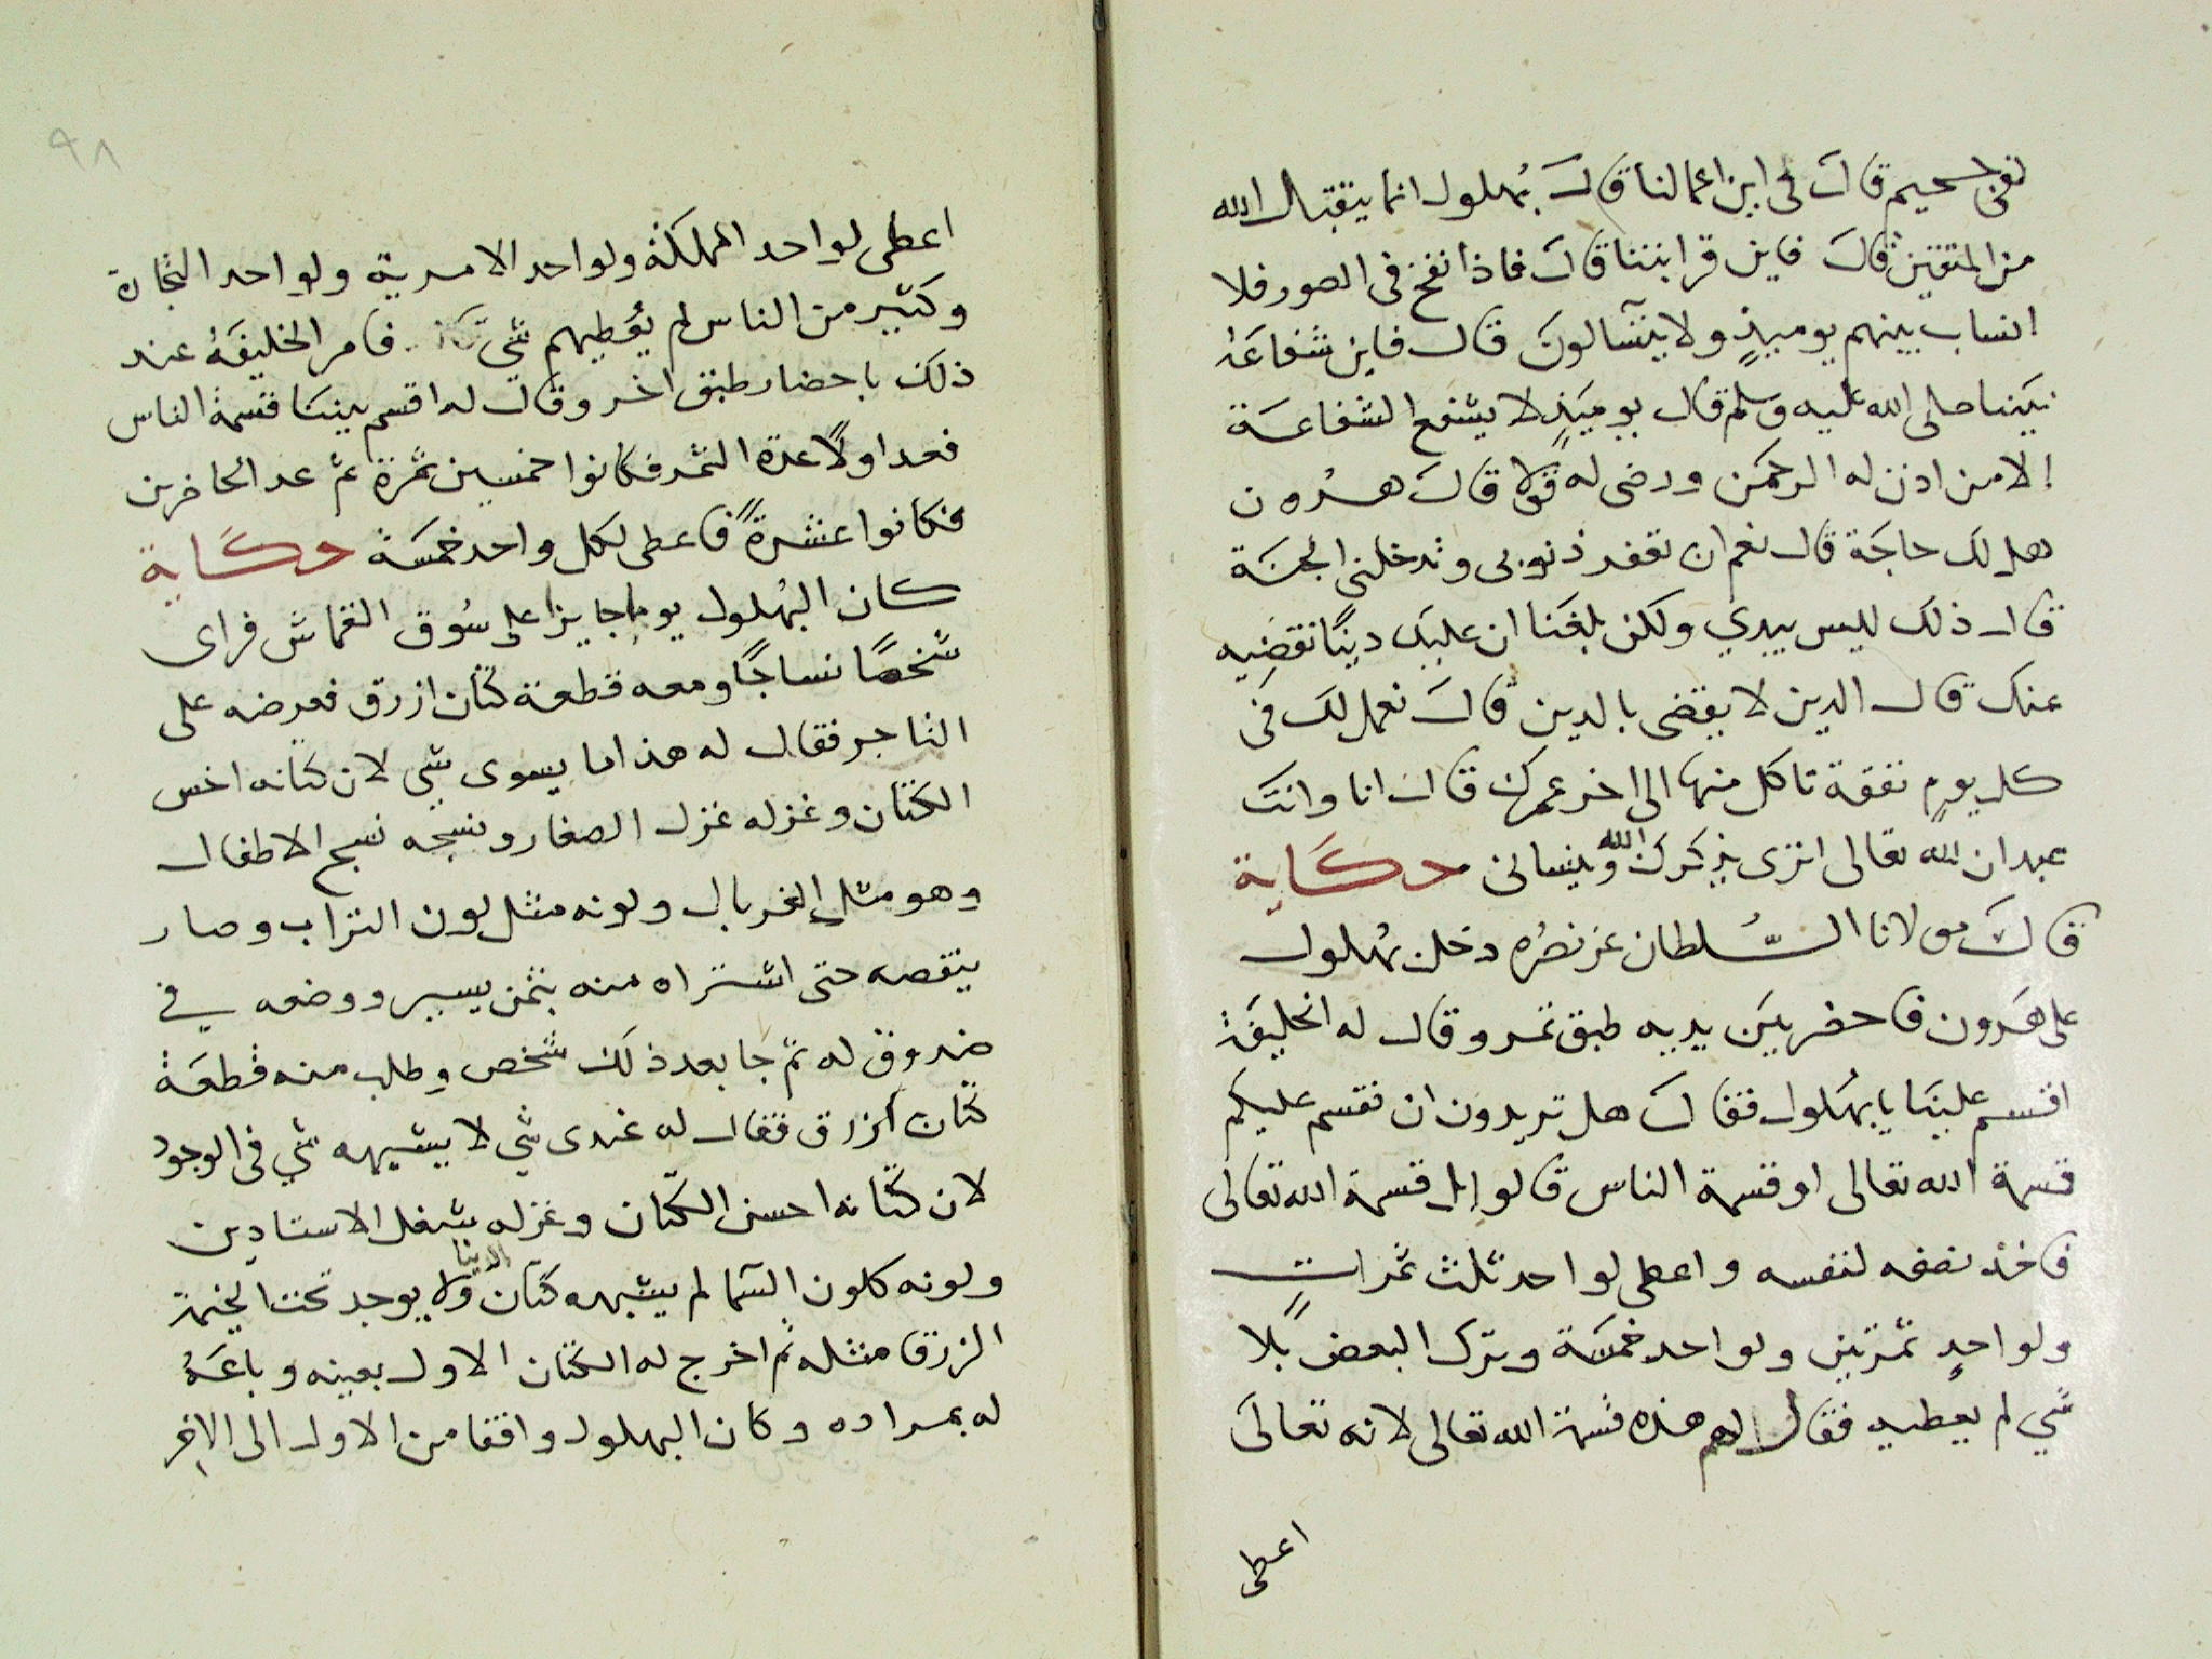 لفى جحيم قال فى اين اعمالنا قال بُهلول انما يتقبل الله
من المتقين قال فاين قرابتنا قال فاذا نفخ فى الصور فلا
انساب بينهم يوميذٍ ولا يتسآلون قال فاين شفاعة
نبينا صلى الله عليه وسلم قال يوميذٍ لا يشفع الشفاعة
الا من اذن له الرحمن ورضى له قولا قال هرون
هل لك حاجة قال نعم ان تغفر ذنوبى وتدخلنى الجنة
قال ذلك ليس بيدي ولكن بلغنا ان عليك دينًا نقضيه
عنك قال الدين لا يقضى بالدين قال نعمل لك فى
كل يوم نفقة تاكل منها الى اخر عمرك قال انا وانت
عبدان لله تعالى اترى يذكرك الله وينسانى حكاية
قال مولانا السُّلطان عز نصرُه دخل بُهلول
على هَرون فاحضر بين يديه طبق تمر وقال له الخليفة
اقسم علينا يا بُهلول فقال هل تريدون ان نقسم عليكم
قسمة الله تعالى او قسمة الناس قالوا بل قسمة الله تعالى
فاخذ نصفه لنفسه واعطى لواحد ثلث تمراتٍ
ولواحدٍ تمرتين ولواحد خمسة وترك البعض بلا
شي لم يعطيه فقال لهم هذه قسمة الله تعالى لانه تعالى
اعطى
٩٨
اعطى لواحد المملكة ولواحد الامرية ولواحد التجارة
وكثير من الناس لم يُعطيهم شي فامر الخليفَة عند
ذلك باحضار طبق اخر وقال له اقسم بيننا قسمة الناس
فعد اولًا عدة التمر فكانوا خمسين تمرة ثم عد الحاضرين
فكانوا عشرةً فاعطى لكل واحد خمسَة حكاية
كان البُهلول يوما جايزا على سُوق القماش فراى
شخصًا نساجًا ومعه قطعة كتان ازرق فعرضه على
التاجر فقال له هذا ما يسوى شي لان كتانه اخس
الكتان وغزله غزل الصغار ونسجه نسج الاطفال
وهو مثل الغربال ولونه مثل لون التراب وصار
ينقصه حتى اشتراه منه بثمن يسير ووضعه في
صندوق له ثم جا بعد ذلك شخص وطلب منه قطعة
كتان ازرق فقال له عندى شي لا يشبهه شي فى الوجود
لان كتانه احسن الكتان وغزله شغل الاستادين
ولونه كلون السما لم يشبهه كتان الدنيا ولا يوجد تحت الخيمة
الزرق مثله ثم اخرج له الكتان الاول بعينه وباعهُ
له بمراده وكان البهلول واقفا من الاول الى الاخر